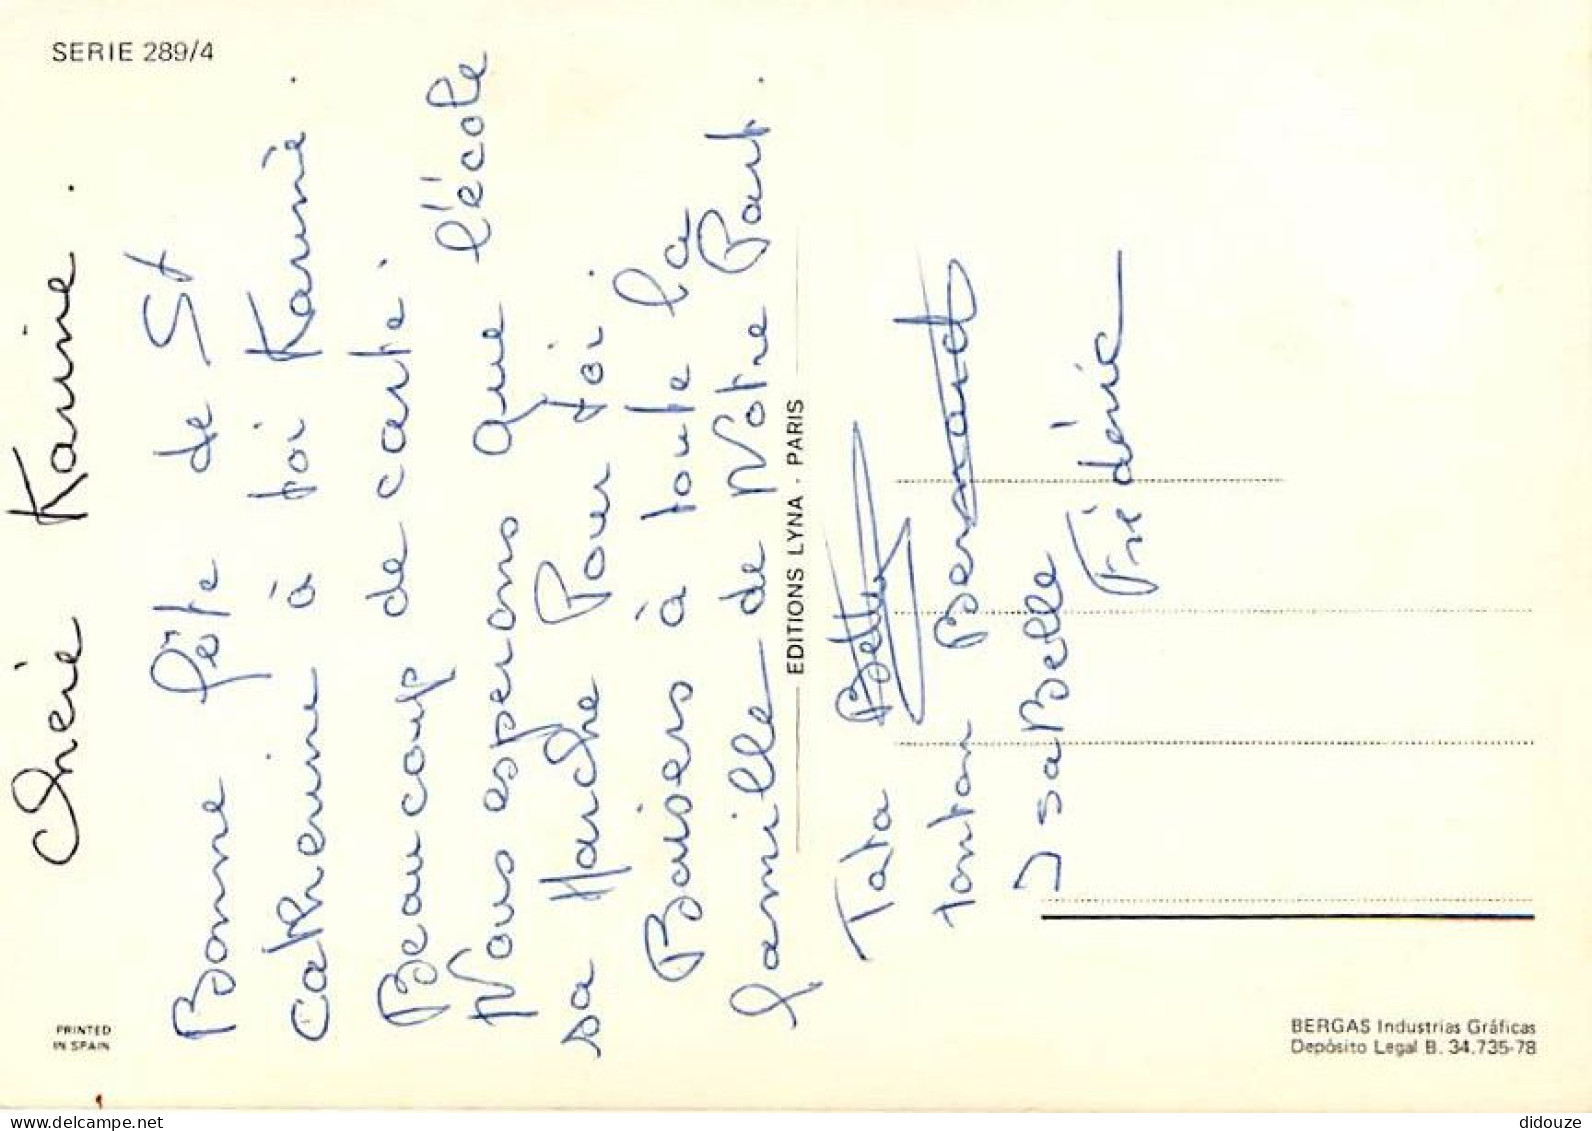 SERIE 289/4
Chérie Karine.
Bonne fête de St
Catherine à toi Karine.
Beaucoup de carte.
Nous esperons que l'école
sa Marche Pour toi.
Baisers à toute la
famille de Notre Part.
Tata Betty
tonton Bernard
IsaBelle
Frédéric
EDITIONS LYNA - PARIS
PRINTED
IN SPAIN
BERGAS Industrias Gráficas
Depósito Legal B. 34.735-78
www.delcampe.net
didouze